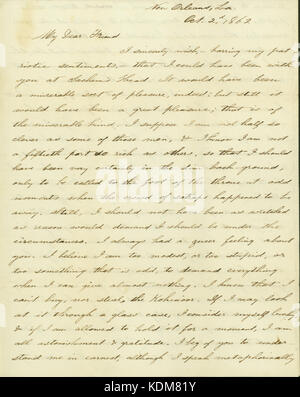 New Orleans, La
Oct. 2d, 1862
My Dear Friend
I sincerely wish, having my pat
riotic sentiments, that I could have been with
you at Sachems Head. It would have been
a miserable sort of pleasure, indeed: but still it
would have been a great pleasure, that is of
the miserable kind. I suppose I am not half so
clever as some of those men, & I know I am not
a fiftieth part so rich as others, so that I should
have been very certainly in the dim back ground,
only to be called to the foot of the throne at odd
moments when the crowd of satraps happened to be
away. Still, I should not have been as wretched
as reason would demand I should be under the
circumstances. I always had a queer feeling about
you. I believe I am too modest, or too stupid, or
too something that is odd, to demand everything
when I can give almost nothing. I know that I
can't buy, nor steal the Kohinoor. If I may look
at it through a glass case, I consider myself lucky
& if I am allowed to hold it for a moment, I am
all astonishment & gratitude. I beg of you to under
stand me in earnest, although I speak metaphorically
a
alamy stock photo
KDM81Y